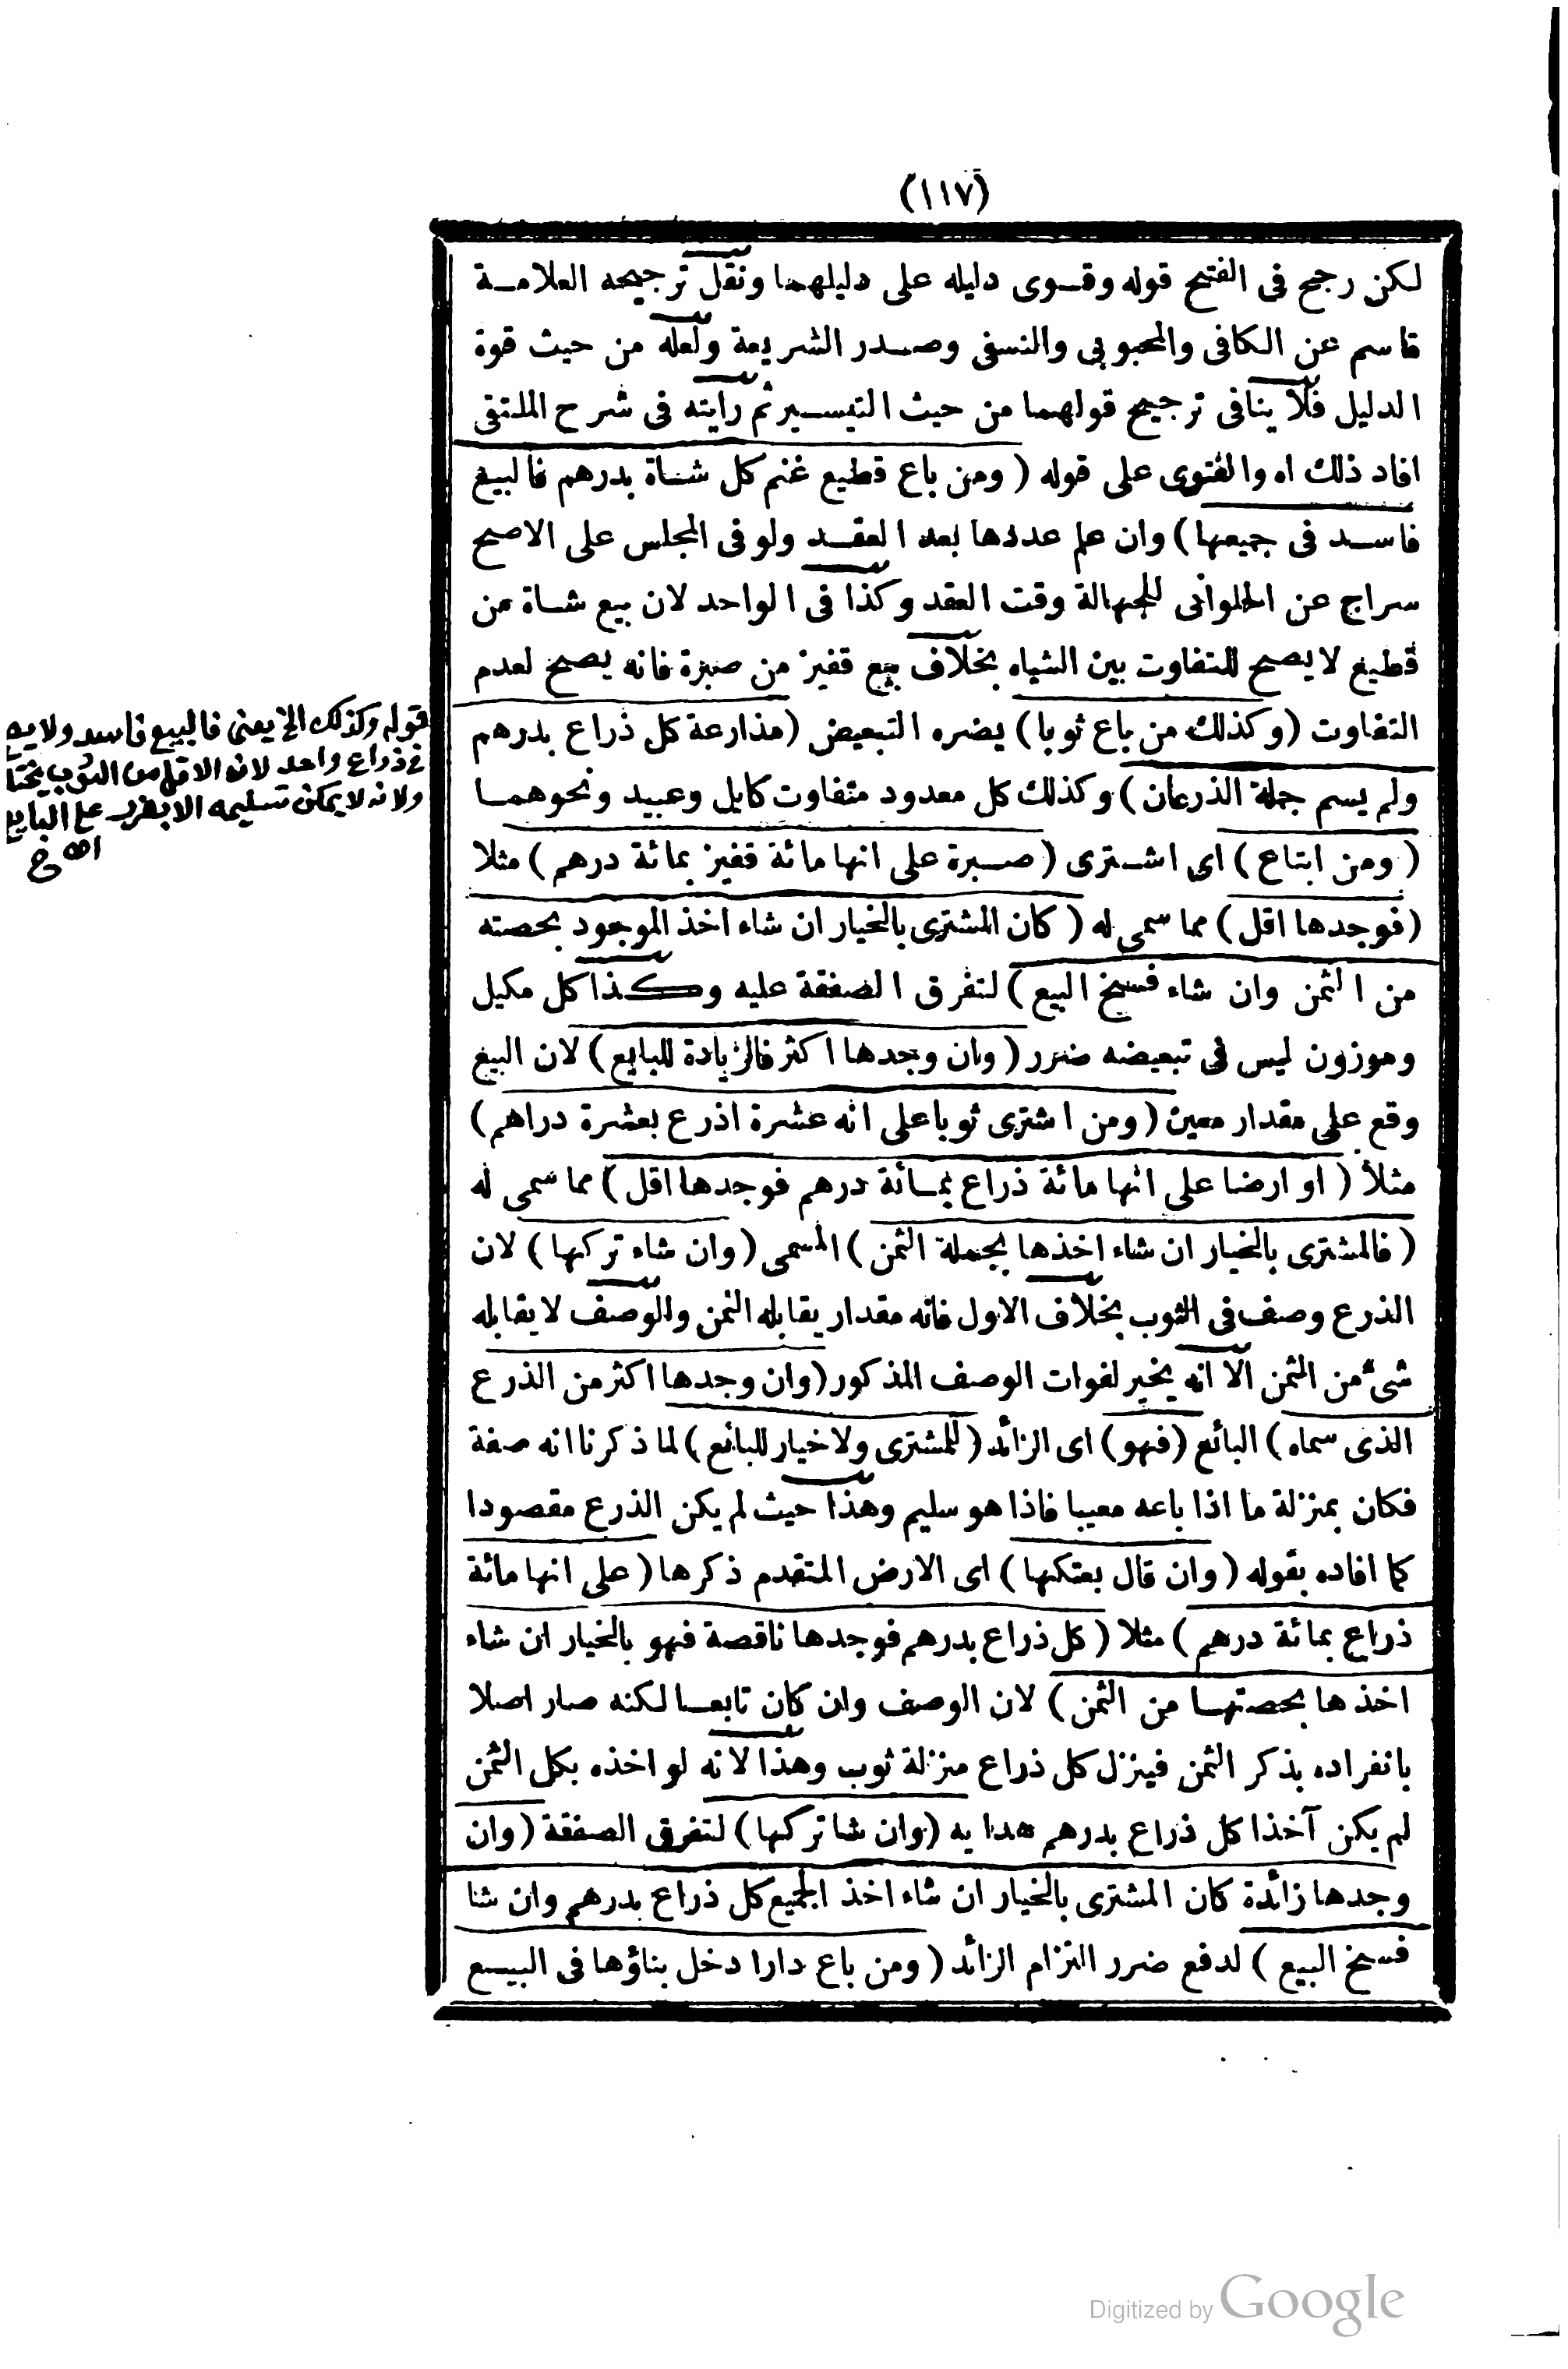 (١١٧)
لكن رجح فى الفتح قوله وقوى دليله على دليلهما ونقل ترجيحه العلامة
قاسم عن الكافى والمحبوبى والنسفى وصدر الشريعة ولعله من حيث قوة
الدليل فلا ينافى ترجيح قولهما من حيث التيسير ثم رايته فى شرح الملتقى
افاد ذلك اه والفتوى على قوله ( ومن باع قطيع غنم كل شاة بدرهم فالبيع
فاسد فى جميعها ) وان علم عددها بعد العقد ولو فى المجلس على الاصح
سراج عن الحلوانى للجهالة وقت العقد وكذا فى الواحد لان بيع شاة من
قطيع لا يصح للتفاوت بين الشياه بخلاف بيع قفيز من صبرة فانه يصح لعدم
التفاوت ( وكذلك من باع ثوبا ) يضره التبعيض ( مذارعة كل ذراع بدرهم
ولم يسم جملة الذرعان ) وكذلك كل معدود متفاوت كابل وعبيد ونحوهما
( ومن ابتاع ) اى اشترى ( صبرة على انها مائة قفيز بمائة درهم ) مثلا
( فوجدها اقل ) مما سمى له ( كان المشترى بالخيار ان شاء اخذ الموجود بحصته
من الثمن وان شاء فسخ البيع ) لتفرق الصفقة عليه وكذا كل مكيل
وموزون ليس فى تبعيضه ضرر ( وان وجدها اكثر فالزيادة للبايع ) لان البيع
وقع على مقدار معين ( ومن اشترى ثوبا على انه عشرة اذرع بعشرة دراهم )
مثلا ( او ارضا على انها مائة ذراع بمائة درهم فوجدها اقل ) مما سمى له
( فالمشترى بالخيار ان شاء اخذها بجملة الثمن ) المسمى ( وان شاء تركها ) لان
الذرع وصف فى الثوب بخلاف الاول فانه مقدار يقابله الثمن والوصف لا يقابله
شىء من الثمن الا انه يخير لفوات الوصف المذكور ( وان وجدها اكثر من الذرع
الذى سماه ) البائع ( فهو ) اى الزائد ( للمشترى ولا خيار للبائع ) لما ذكرنا انه صفة
فكان بمنزلة ما اذا باعه معيبا فاذا هو سليم وهذا حيث لم يكن الذرع مقصودا
كما افاده بقوله ( وان قال بعتكها ) اى الارض المتقدم ذكرها ( على انها مائة
ذراع بمائة درهم ) مثلا ( كل ذراع بدرهم فوجدها ناقصة فهو بالخيار ان شاء
اخذها بحصتها من الثمن ) لان الوصف وان كان تابعا لكنه صار اصلا
بانفراده بذكر الثمن فينزل كل ذراع منزلة ثوب وهذا لانه لو اخذه بكل الثمن
لم يكن آخذا كل ذراع بدرهم هدايه ( وان شا تركها ) لتفرق الصفقة ( وان
وجدها زائدة كان المشترى بالخيار ان شاء اخذ الجميع كل ذراع بدرهم وان شا
فسخ البيع ) لدفع ضرر التزام الزائد ( ومن باع دارا دخل بناؤها فى البيع
قوله وكذلك الخ يعنى فالبيع فاسد ولا
فى ذراع واحد لان الاقل من الثوب
ولانه لا يمكن تسليمه الا بضرر على البايع
Digitized by Google